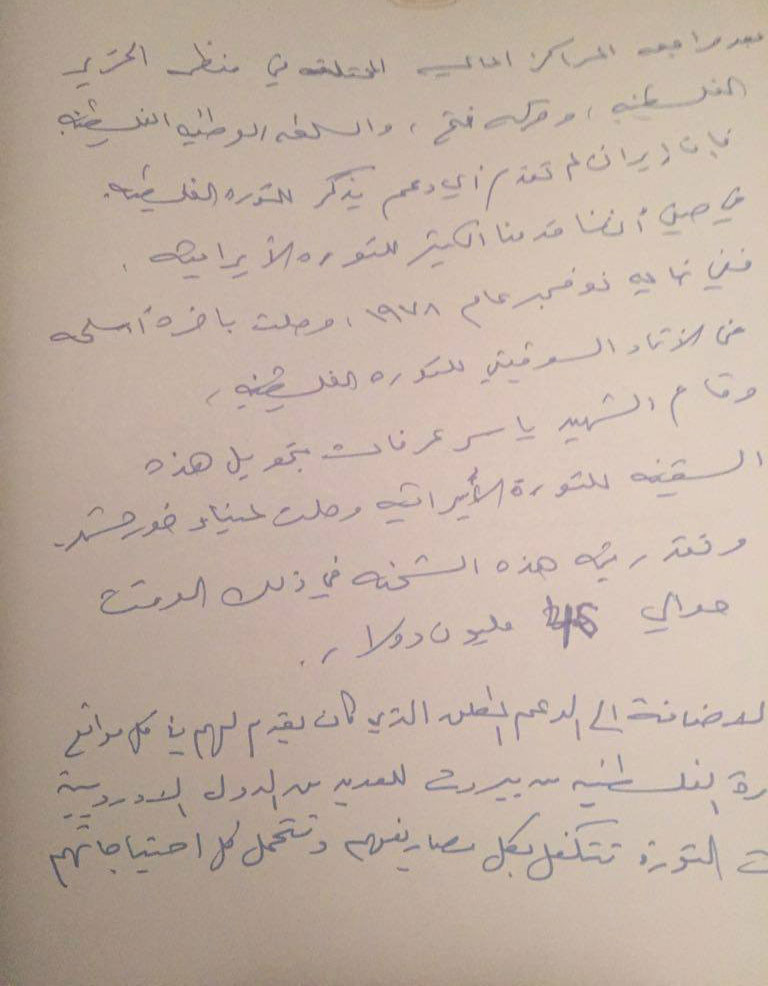 بعد مراجعه المراكز الماليه المختلفه في منظمه التحرير
الفلسطينيه ، وحركه فتح ، والسلطه الوطنيه الفلسطينيه
فإن ايران لم تقدم أي دعم يذكر للثوره الفلسطينيه .
في حين أننا قدمنا الكثير للثوره الأيرانيه .
ففي نهايه نوفمبر عام ١٩٧٨ ، وصلت باخره أسلحه
من الاتحاد السوفيتي للثوره الفلسطينيه ,
وقام الشهيد ياسر عرفات بتحويل هذه
السفينه للثورة الأيرانيه وصلت لميناء خورمشهر .
وتقدر هذه الشحنه في ذلك الوقت
حوالي 45 مليون دولار .
بالاضافة الى الدعم المطلق الذي كان يقدم لهم في كل مواقع
الثورة الفلسطينيه من بيروت للعديد من الدول الاوروبية
التورة تتكفل بكل مصاريفهم وتتحمل كل احتياجاتهم